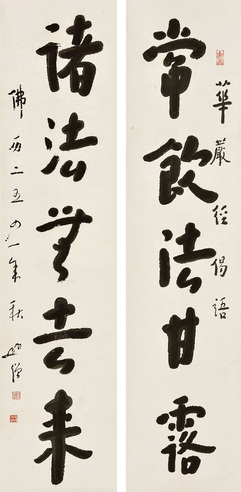 華嚴經偈語
常飲法甘露
諸法無去來
佛曆二五四一年秋